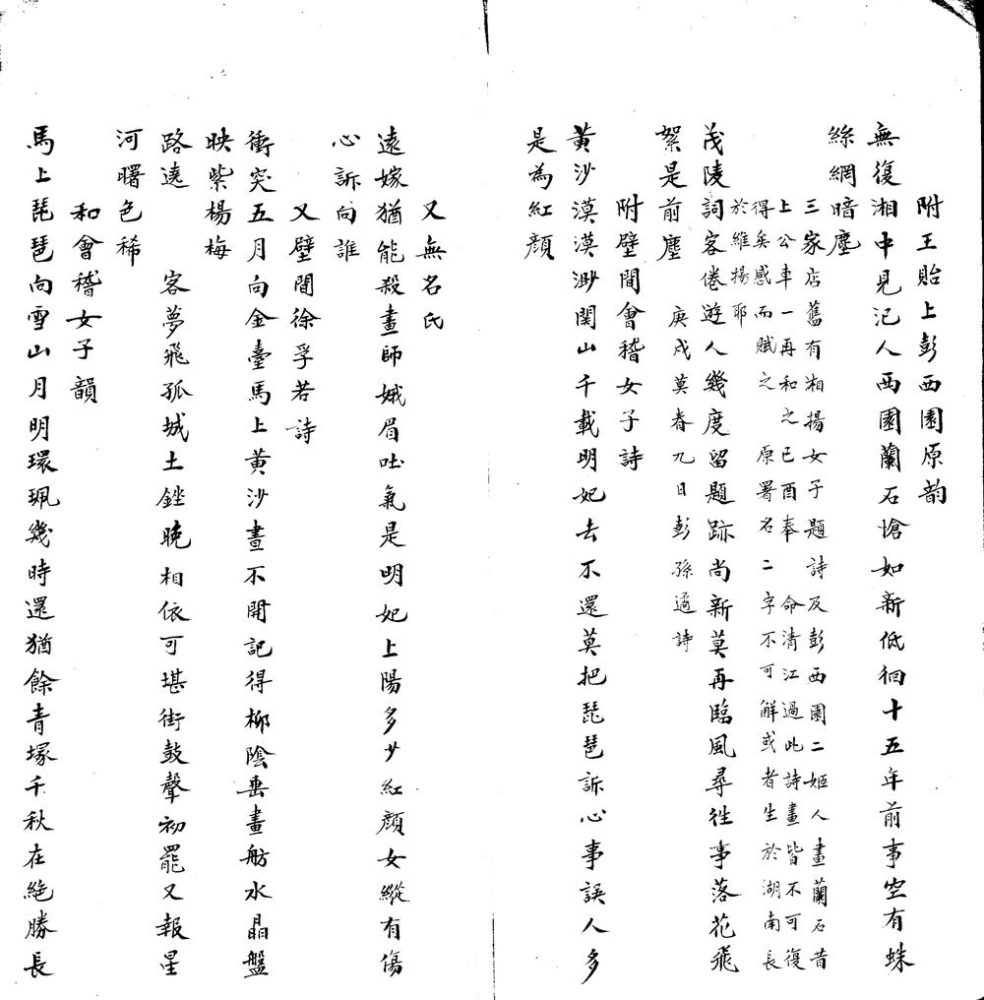 附王貽上彭西園原韵
無復湘中見汜人西園蘭石愴如新低徊十五年前事空有蛛
絲網暗塵
三家店舊有湘揚女子題詩及彭西園二姬人畫蘭石昔
上公車一再和之己酉奉命清江過此詩畫皆不可復
得矣感而賦之原署名二字不可解或者生於湖南長
於維揚耶
茂陵詞客倦遊人幾度留題跡尚新莫再臨風尋往事落花飛
絮是前塵
庚戌莫春九日彭孫遹詩
附壁間會稽女子詩
黃沙漠漠渺関山千載明妃去不還莫把琵琶訴心事誤人多
是為紅顏
又無名氏
遠嫁猶能殺畫師娥眉吐氣是明妃上陽多少紅顏女縱有傷
心訴向誰
又壁間徐孚若詩
衝突五月向金臺馬上黃沙晝不開記得柳陰垂畫舫水晶盤
映紫楊梅
客夢飛孤城土銼晚相依可堪街鼓聲初罷又報星
路遶
河曙色稀
和會稽女子韻
馬上琵琶向雪山月明環珮幾時還猶餘青塚千秋在絕勝長